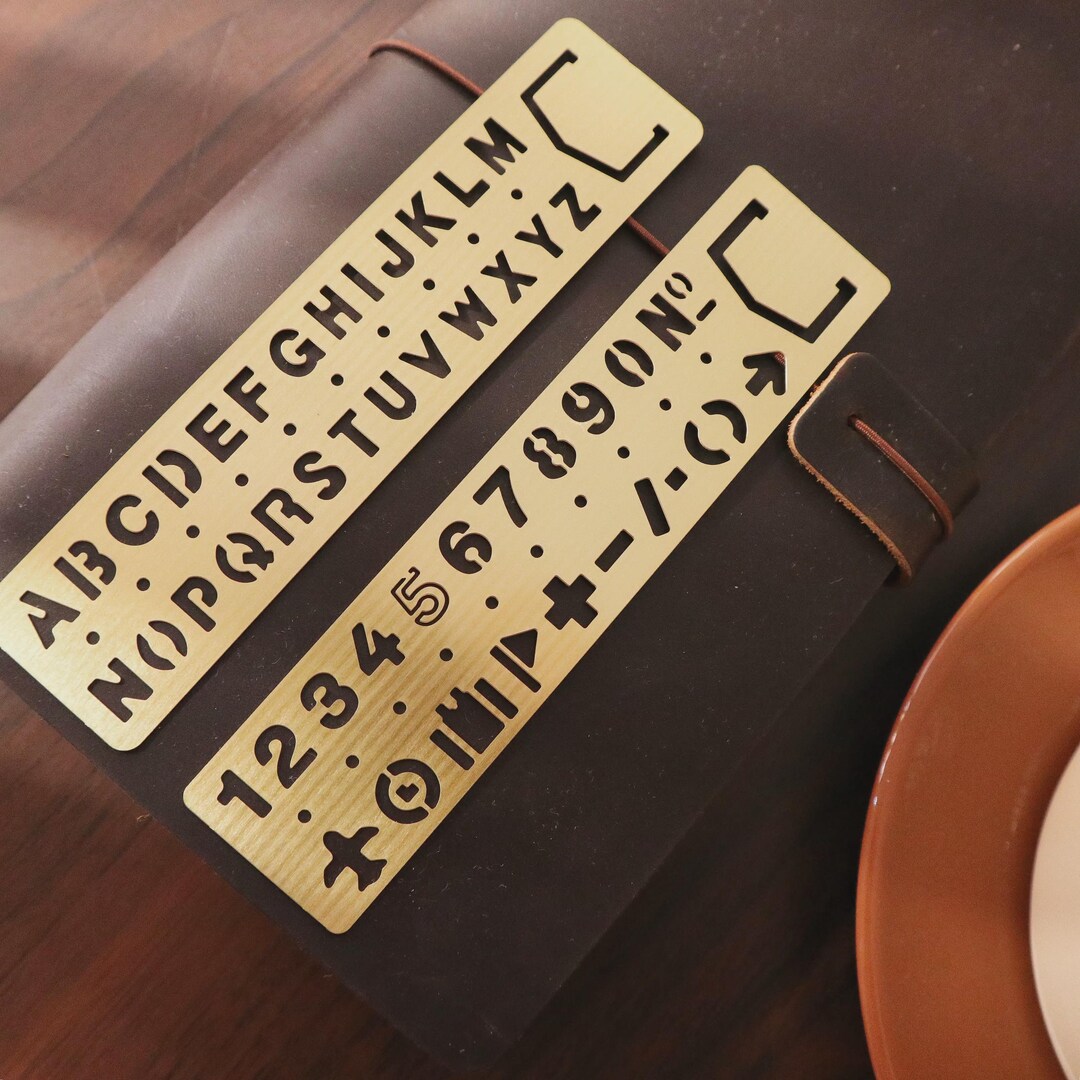 ABCDEFGHIJKLM
NOPQRSTUVWXYZ
1234567890№
+-/-()